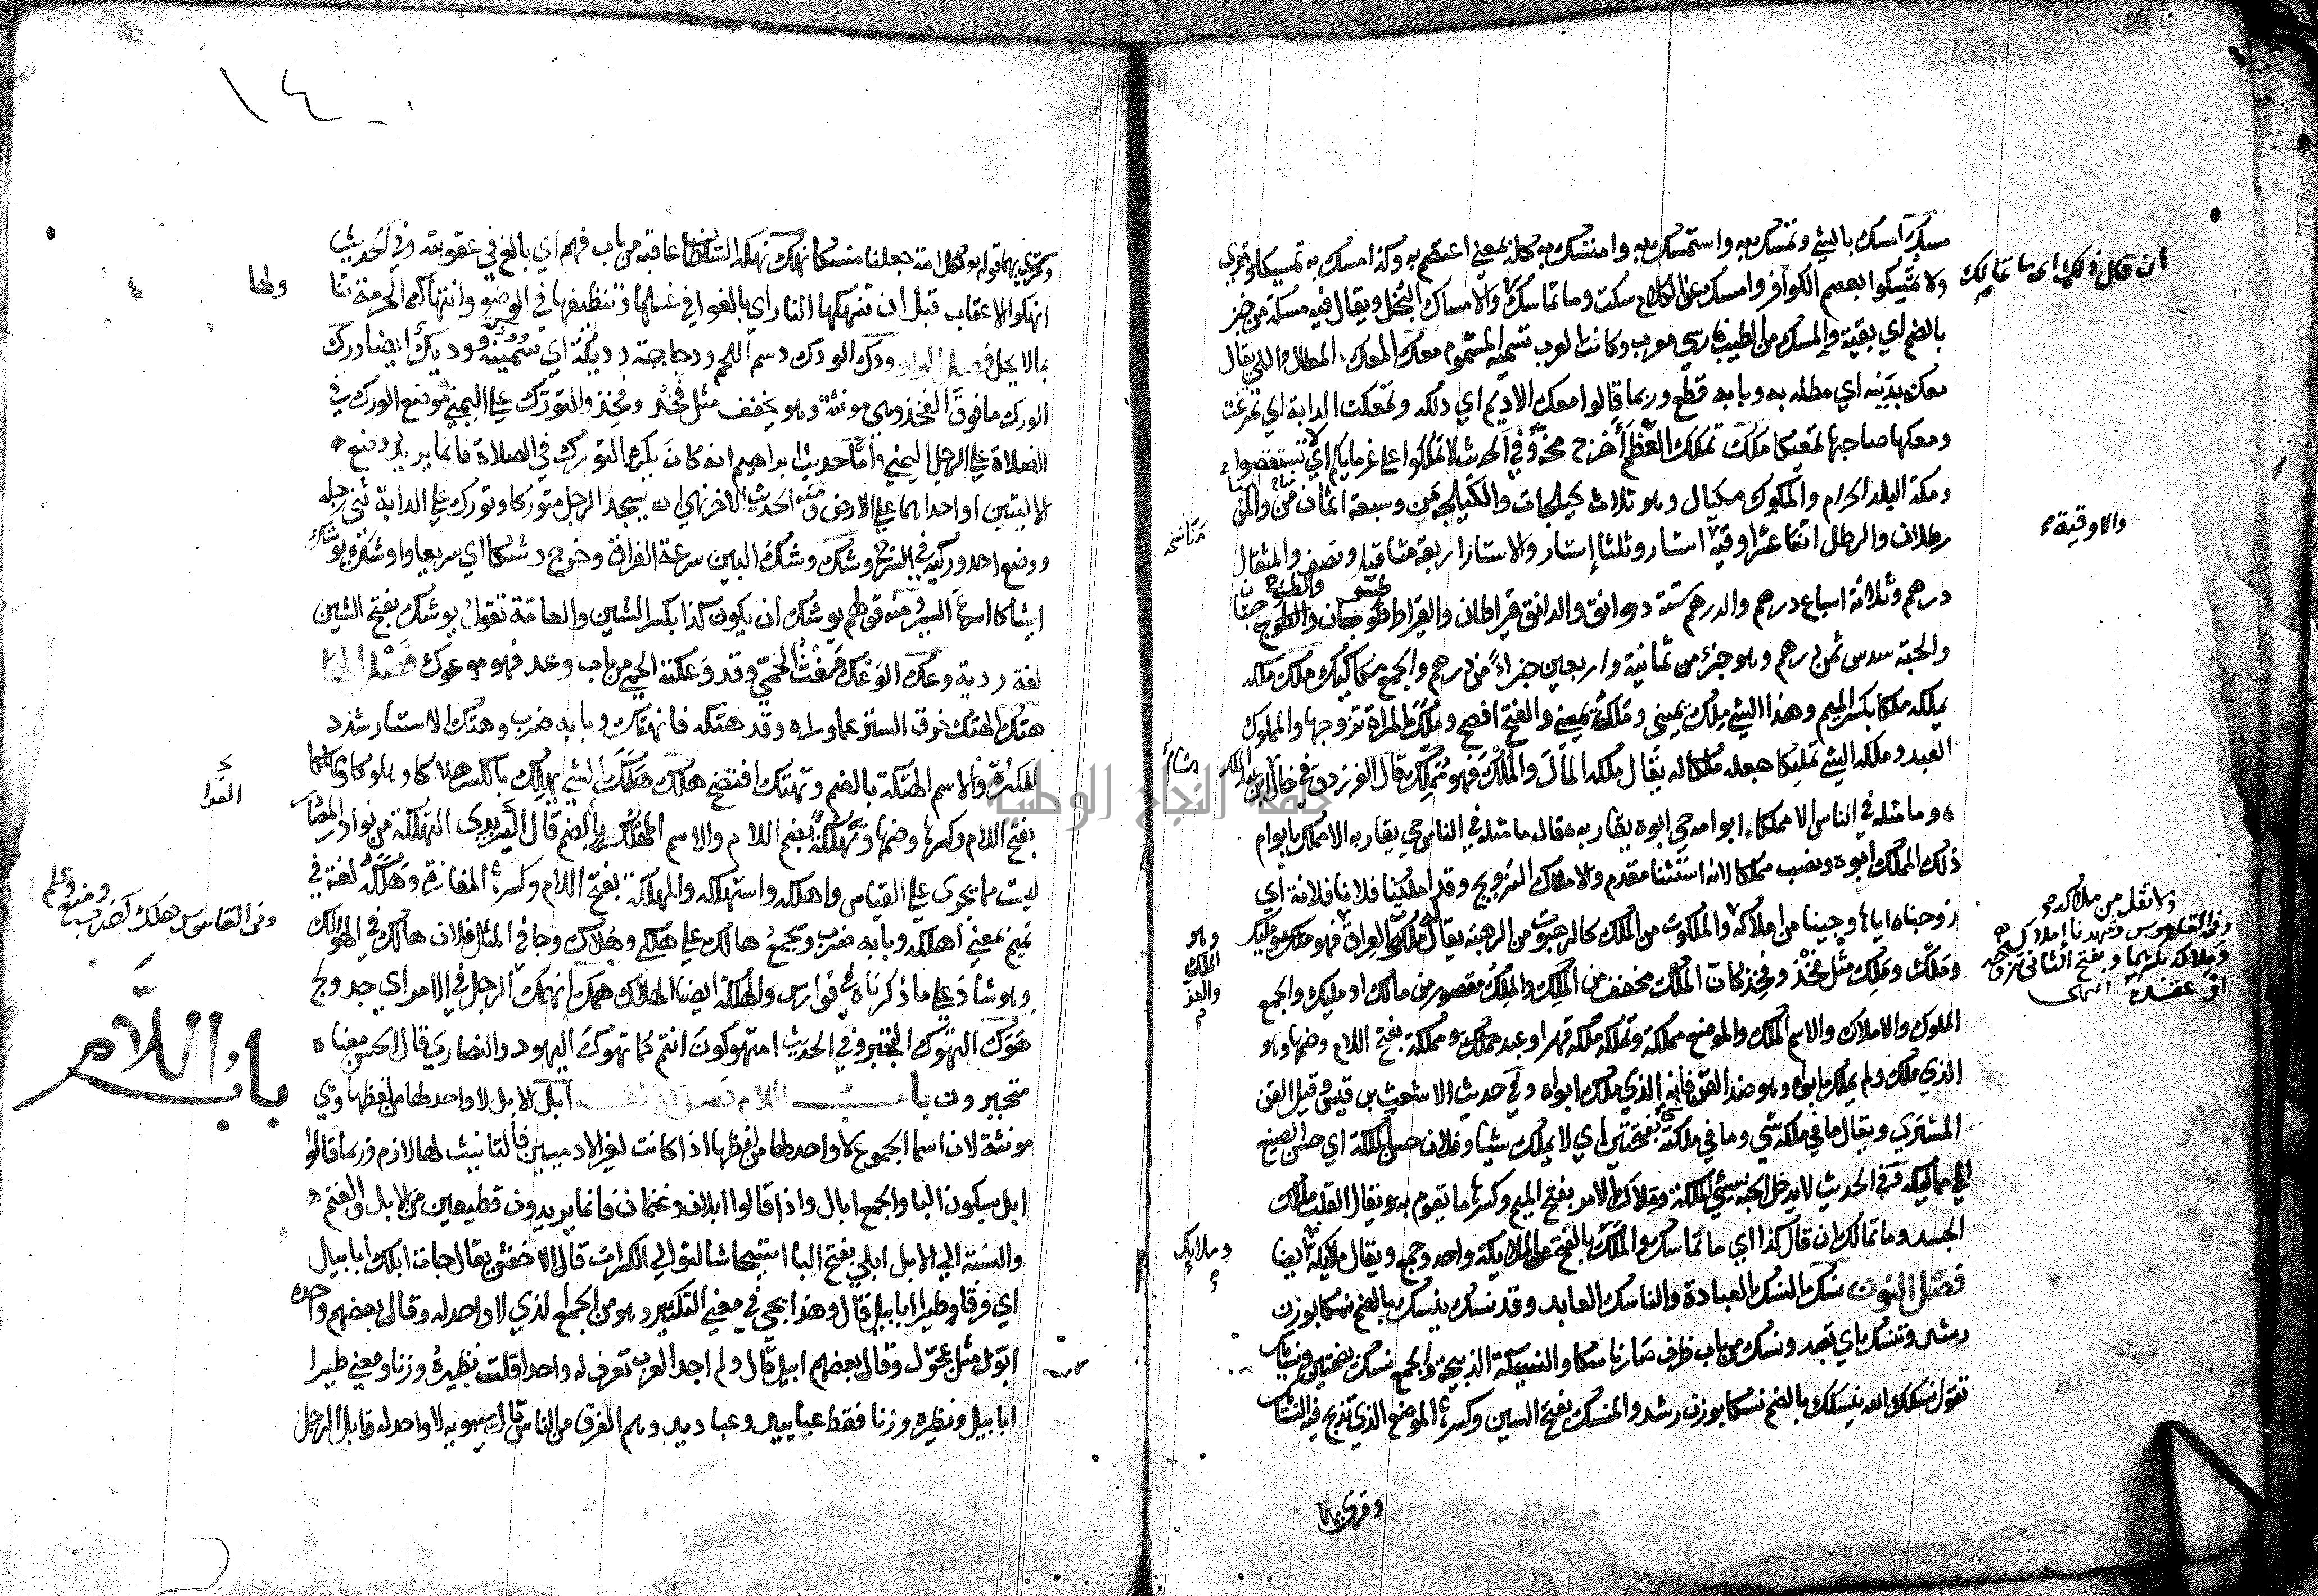 مسك أمسك بالشيء وتمسك به واستمسك به وامتسك به كله بمعنى اعتصم به وكذا مسك به تمسيكا وقرئ
ولا تمسكوا بعصم الكوافر وامسك عن الكلام سكت وما تماسك والامساك البخل ويقال فيه مسكة من خير
ان قال ذلك اي ما تمالك
بالضم اي بقية والمسك من الطيب فارسي معرب وكانت العرب تسميه المشموم معك المعك المطال واللي يقال
معكه بدينه اي مطله به وبابه قطع وربما قالوا معك الاديم اي دلكه وتمعكت الدابة اي تمرغت
ومعكها صاحبها تمعيكا مكك تمكك العظم أخرج مخه وفي الحديث لا تمككوا على غرمايكم اي لا تستقصوا
ومكة البلد الحرام والمكوك مكيال وهو ثلاث كيلجات والكيلجة من وسبعة اثمان من والمن
رطلان والرطل اثنتا عشرة اوقية استار وثلثا إستار والاستار اربعة مثاقيل ونصف والمثقال
والاوقية
درهم وثلاثة اسباع درهم والدرهم ستة دوانق والدانق قيراطان والقيراط طسوجان والطسوج حبتان
والحبة سدس ثمن درهم وهو جزء من ثمانية واربعين جزاء من درهم والجمع مكاكيك ملك ملكه
يملكه ملكا بكسر الميم وهذا الشيء ملك يميني وملك يميني والفتح افصح وملك المراة تزوجها والمملوك
العبد وملكه الشيء تمليكا جعله ملكا له يقال ملكه المال والملك فهو مملك قال الفرزدق في خال
وما مثله في الناس الا مملكا ابو امه حي ابوه يقاربه قال ما مثله في الناس حي يقاربه الا مملك ابو ام
ذلك المملك ابوه ونصب مملكا لانه استثنا مقدم والاملاك التزويج وقد املكنا فلانا فلانة اي
زوجناه اياها وجينا من املاكه والملكوت من الملك كالرهبوت من الرهبة يقال له ملكوت العراق فهو ملك مليك
ولا تقل من ملاكه
وملك وملك مثل فخذ وفخذ كان الملك مخفف من الملك والملك مقصور من مالك او مليك والجمع
الملوك والاملاك والاسم الملك والموضع مملكة وتملكه ملكه قهرا وعبد مملكة ومملكة بفتح اللام وضمها وهو
الذي ملك ولم يملك ابواه وهو ضد القن فانه الذي ملك ابواه وفي حديث الاشعث بن قيس وقيل القن
المشتري ويقال ما في ملكه شي وما في ملكته شي بفتحتين اي لا يملك شيئا وفلان حسن الملكة اي حسن الصنيع
الى مماليكه وفي الحديث لا يدخل الجنة سيئ الملكة وملاك الامر بفتح الميم وكسرها ما يقوم به ويقال القلب ملاك
الجسد وما تمالك ان قال كذا اي ما تماسك والملك بالفتح من الملايكة واحد وجمع ويقال ملايكة ايضا
وملايك
فصل النون نسك النسك العبادة والناسك العابد وقد نسك ينسك بالضم نسكا بوزن
رشد وتنسك اي تعبد ونسك من باب ظرف صار ناسكا والنسيكة الذبيحة والجمع نسك بضمتين ونسائك
تقول نسك لله ينسك بالضم نسكا بوزن رشد والمنسك بفتح السين وكسرها الموضع الذي تذبح فيه النسائك
وقرئ بهما
١٤٠
وقرئ بهما قوله لكل امة جعلنا منسكا نهك نهكه السلطان عاقبه من باب فهم اي بالغ في عقوبته وفي الحديث
انهكوا الاعقاب قبل ان تنهكها النار اي بالغوا في غسلها وتنظيفها في الوضو وانتهاك الحرمة تنا
ولها
بما لا يحل فصل الواو ودك الودك دسم اللحم ودجاجة وديكة اي سمينة ووديك ايضا ورك
الورك ما فوق الفخذ وهي مونثة وهو يخفف مثل فخذ وفخذ والتورك على اليمنى وضع الورك في
الصلاة على الرجل اليمنى وأما حديث ابراهيم انه كان يكره التورك في الصلاة فانما يريد وضع
الاليتين او احداهما على الارض ومنه الحديث الاخر نهى ان يسجد الرجل متوركا وتورك على الدابة ثنى رجله
ووضع احد وركيه في السرج وشك وشك البين سرعة الفراق وخرج وشيكا اي سريعا واوشك يوشك
ايشاكا اسرع السير ومنه قولهم يوشك ان يكون كذا بكسر الشين والعامة تقول يوشك بفتح الشين
لغة ردية وعك الوعك مغث الحمى وقد وعكته الحمى من باب وعد فهو موعوك فصل الها
هتك الهتك خرق الستر عما وراه وقد هتكه فانهتك وبابه ضرب وهتك الاستار شدد
للكثرة والاسم الهتكة بالضم وتهتك افتضح هلك هلك الشي يهلك بالكسر هلاكا وهلوكا
بفتح اللام وكسرها وضمها وتهلكة بضم اللام والاسم الهلك بالضم قال اليزيدي التهلكة من نوادر المصادر
ليست مما يجرى على القياس واهلكه واستهلكه والمهلكة بفتح اللام وكسرها المفازة وهلكه لغة في
وفي القاموس هلك كضرب ومنع وعلم
تميم بمعنى أهلكه وبابه ضرب ويجمع هالك على هلكى وهلاك وجا في المثل فلان هالك في الهوالك
وهو شاذ على ما ذكرناه في فوارس والهلكة ايضا الهلاك همك انهمك الرجل في الامر اي جد ولج
هوك التهوك التحير وفي الحديث امتهوكون انتم كما تهوكت اليهود والنصاري قال الحسن معناه
باب اللام
متحيرون باب اللام فصل الالف أبل الابل لا واحد لها من لفظها وهي
مونثة لان اسما الجموع لا واحد لها من لفظها اذا كانت لغير الادميين فالتانيث لها لازم وربما قالوا
ابل بسكون البا والجمع ابال واذا قالوا ابلان وغنمان فانما يريدون قطيعين من الابل والغنم
والنسبة الى الابل ابلي بفتح البا استيحاشا لتوالي الكسرات قال الاخفش يقال جات ابلك ابابيل
اي فرقا وطيرا ابابيل قال وهذا يجي في معنى التكثير وهو من الجمع الذي لا واحد له وقال بعضهم واحده
ابول مثل عجول وقال بعضهم ابيل قال ولم اجد العرب تعرف له واحدا قلت نظيره وزنا ومعنى طيرا
ابابيل ونظيره وزنا فقط عبابيد وعباديد وهم الفرق من الناس قال سيبويه لا واحد له قابل الرجل